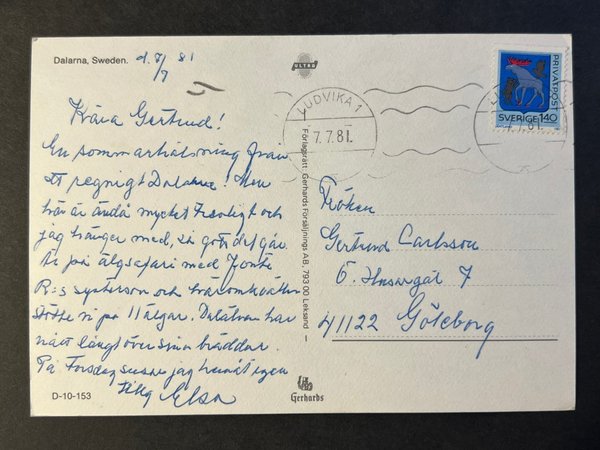 Dalarna, Sweden.
d. 7/7 81
ULTRA
Kära Gertrud!
En sommarhälsning från
ett regnigt Dalarne! Men
här är ändå mycket trevligt och
jag hänger med, så gott det går.
på älgsafari med
R:s systerson och
stötte vi på 11 älgar. Dalälven har
nått långt över sina bräddar.
På Torsdag susar jag hemåt igen
Elsa
D-10-153
Förlagsrätt Gerhards Försäljnings AB, 793 00 Leksand
Gerhards
LUDVIKA 1
7.7.81.
PRIVATPOST
SVERIGE 140
Fröken
Gertrud Carlsson
Ö. Husargat 7
41122 Göteborg